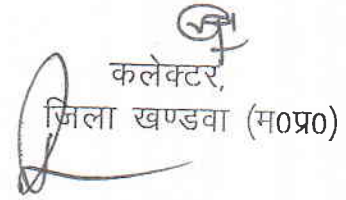 कलेक्टर,
जिला खण्डवा (म0प्र0)